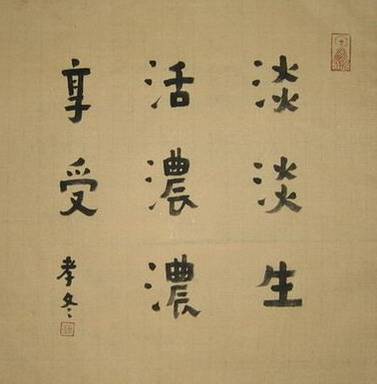 淡淡生
活濃濃
享受
孝冬